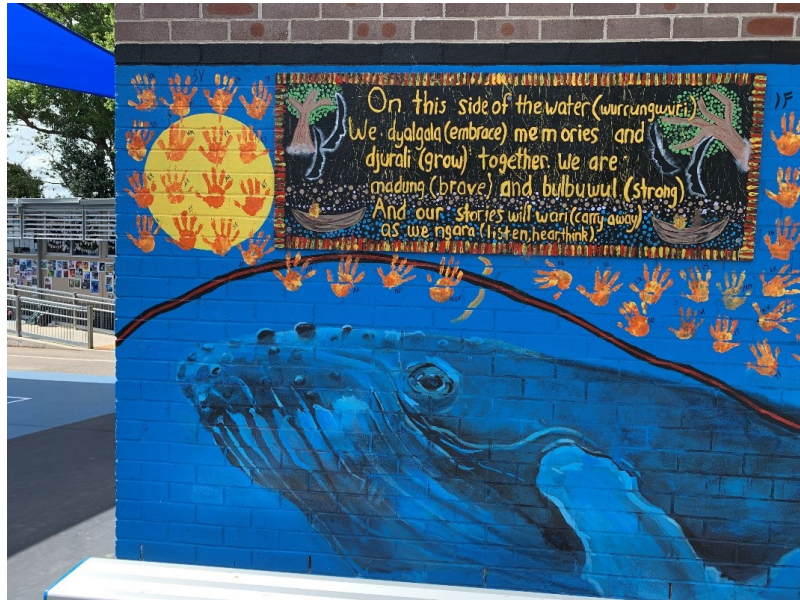 On this side of the water (wurrungwuri)
We dyalgala (embrace) memories and
djurali (grow) together. We are
madung (brave) and bulbuwul (strong)
And our stories will wari (carry away)
as we ngara (listen, hear think)
1F